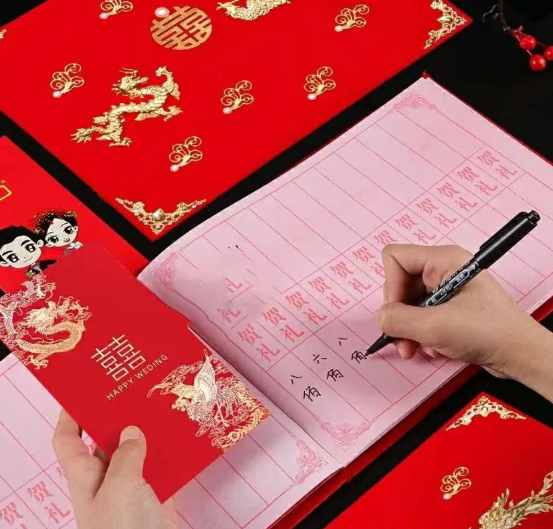 囍
囍
HAPPY WEDDING
贺礼
贺礼
贺礼
贺礼
贺礼
贺礼
贺礼
贺礼
贺礼
贺礼
贺礼
八佰
六佰
八佰
贺礼
贺